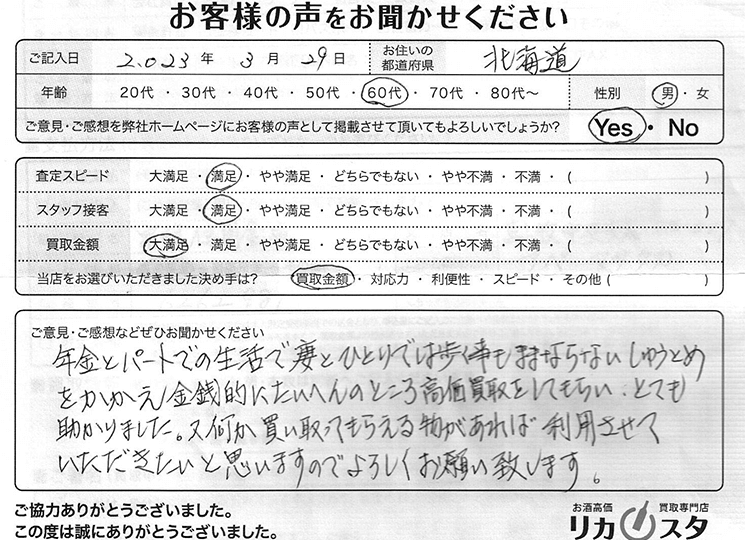 お客様の声をお聞かせください
ご記入日 2023年 3月 29日 お住いの都道府県 北海道
年齢 20代 ・ 30代 ・ 40代 ・ 50代 ・ 60代 ・ 70代 ・ 80代～ 性別 男 ・ 女
ご意見・ご感想を弊社ホームページにお客様の声として掲載させて頂いてもよろしいでしょうか? Yes ・ No
査定スピード 大満足 ・ 満足 ・ やや満足 ・ どちらでもない ・ やや不満 ・ 不満 ・ ( )
スタッフ接客 大満足 ・ 満足 ・ やや満足 ・ どちらでもない ・ やや不満 ・ 不満 ・ ( )
買取金額 大満足 ・ 満足 ・ やや満足 ・ どちらでもない ・ やや不満 ・ 不満 ・ ( )
当店をお選びいただきました決め手は? 買取金額 ・ 対応力 ・ 利便性 ・ スピード ・ その他 ( )
ご意見・ご感想などぜひお聞かせください
年金とパートでの生活で妻とひとりでは歩く事もままならないしゅうとめ
をかかえ金銭的にたいへんのところ高価買取をしてもらい、とても
助かりました。又何か買い取ってもらえる物があれば利用させて
いただきたいと思いますのでよろしくお願い致します。
ご協力ありがとうございました。
この度は誠にありがとうございました。
お酒高価 買取専門店
リカスタ